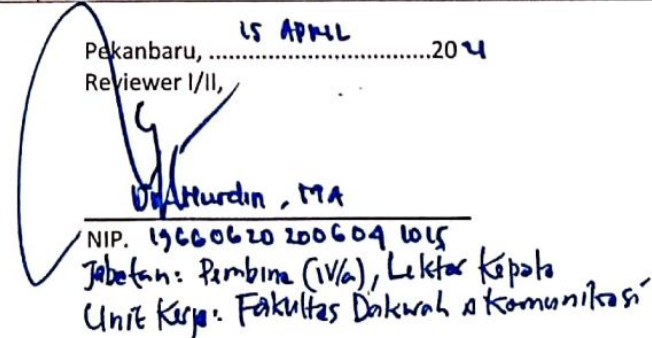 Pekanbaru, 15 APRIL 2021
Reviewer I/II,
Dr. Nurdin, MA
NIP. 19660620 200604 1015
Jabatan: Pembina (IV/a), Lektor Kepala
Unit Kerja: Fakultas Dakwah & Komunikasi